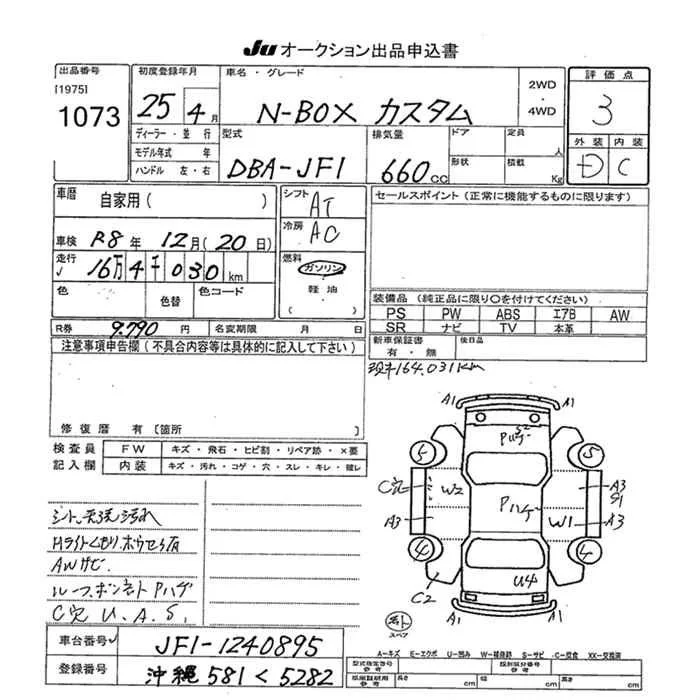 Ju オークション出品申込書
出品番号
[1975]
1073
初度登録年月
25 4月
ディーラー・並行
モデル年式 年
ハンドル 左・右
車名・グレード
N-BOX カスタム
2WD
・
4WD
型式
DBA-JF1
排気量
660cc
ドア
定員
人
形状
積載
Kg
評価点
3
外装 内装
D C
車歴
自家用( )
車検 R8年 12月(20日)
走行 16万4千030km
色
色替
色コード
シフト
AT
冷房
AC
燃料
ガソリン
軽油
( )
R券 9.790円
名変期限 月 日
セールスポイント(正常に機能するものに限ります)
装備品(純正品に限り○を付けてください)
PS PW ABS エアB AW
SR ナビ TV 本革
新車保証書
有・無
後日品
現車164.031km
注意事項申告欄(不具合内容等は具体的に記入して下さい)
修復歴 有[箇所
検査員
記入欄
FW キズ・飛石・ヒビ割・リペア跡・×要
内装 キズ・汚れ・コゲ・穴・スレ・キレ・破レ
シート、天洗汚れ
Hライトくもり.ホウセキ有
AWサビ
ルーフ.ボンネットPハゲ
C穴 U.A.S.
A1 A1
S2
Pハゲ
5 5
C穴 W2 Pハゲ A3
S1
A3 W1 A3
4 4
U4
C2
A1 A1
スペア
車台番号 JF1-1240895
登録番号 沖縄 581 く 5282
A-キズ E-エクボ U-凹み W-補修跡 S-サビ C-腐食 XX-交換済
型式指定番号
参考
類別区分番号
参考
長さ cm
幅 cm
高さ cm